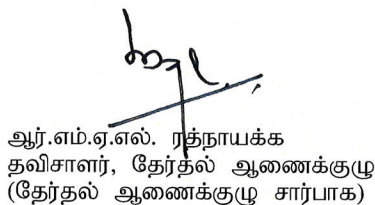 ஆர்.எம்.ஏ.எல். ரத்நாயக்க
தவிசாளர், தேர்தல் ஆணைக்குழு
(தேர்தல் ஆணைக்குழு சார்பாக)